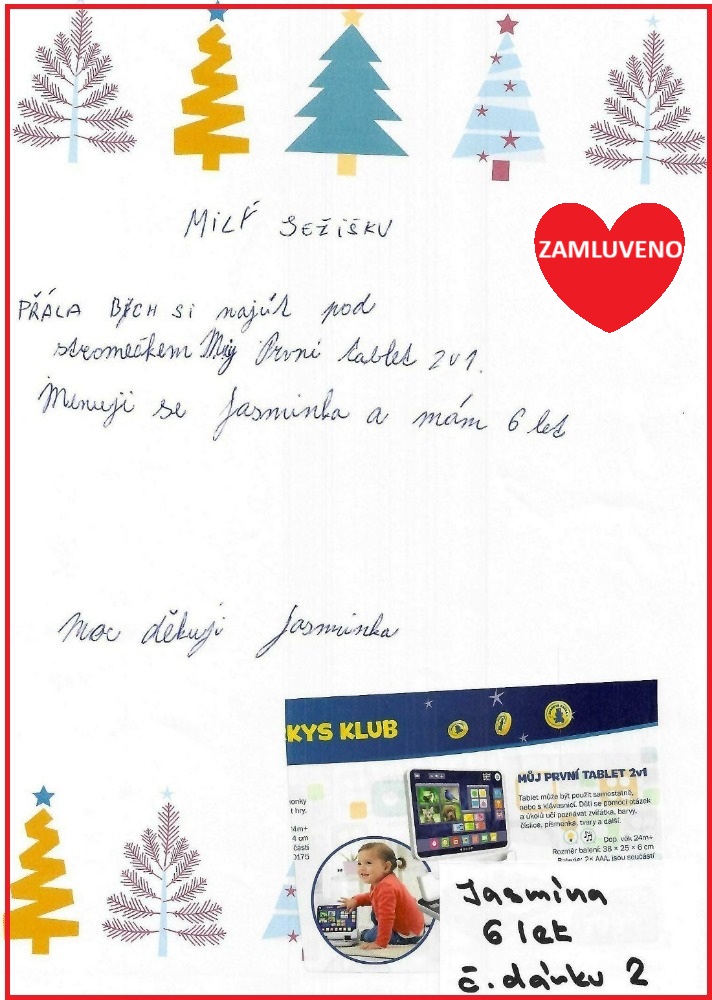 MILÝ JEŽÍŠKU
ZAMLUVENO
PŘÁLA BYCH SI najít pod
stromečkem Můj První tablet 2v1.
Jmenuji se Jasmínka a mám 6 let
Moc děkuji Jasmínka
KYS KLUB
MŮJ PRVNÍ TABLET 2v1
Tablet může být použit samostatně,
nebo s klávesnicí. Děti se pomocí otázek
a úkolů učí poznávat zvířátka, barvy,
číslice, písmenka, tvary a další.
Dop. věk 24m+
Rozměr balení: 38 × 25 × 6 cm
Baterie: 2× AAA, jsou součástí
onky
t hry.
4m+
4 cm
části
0175
Jasmína
6 let
č. dárku 2